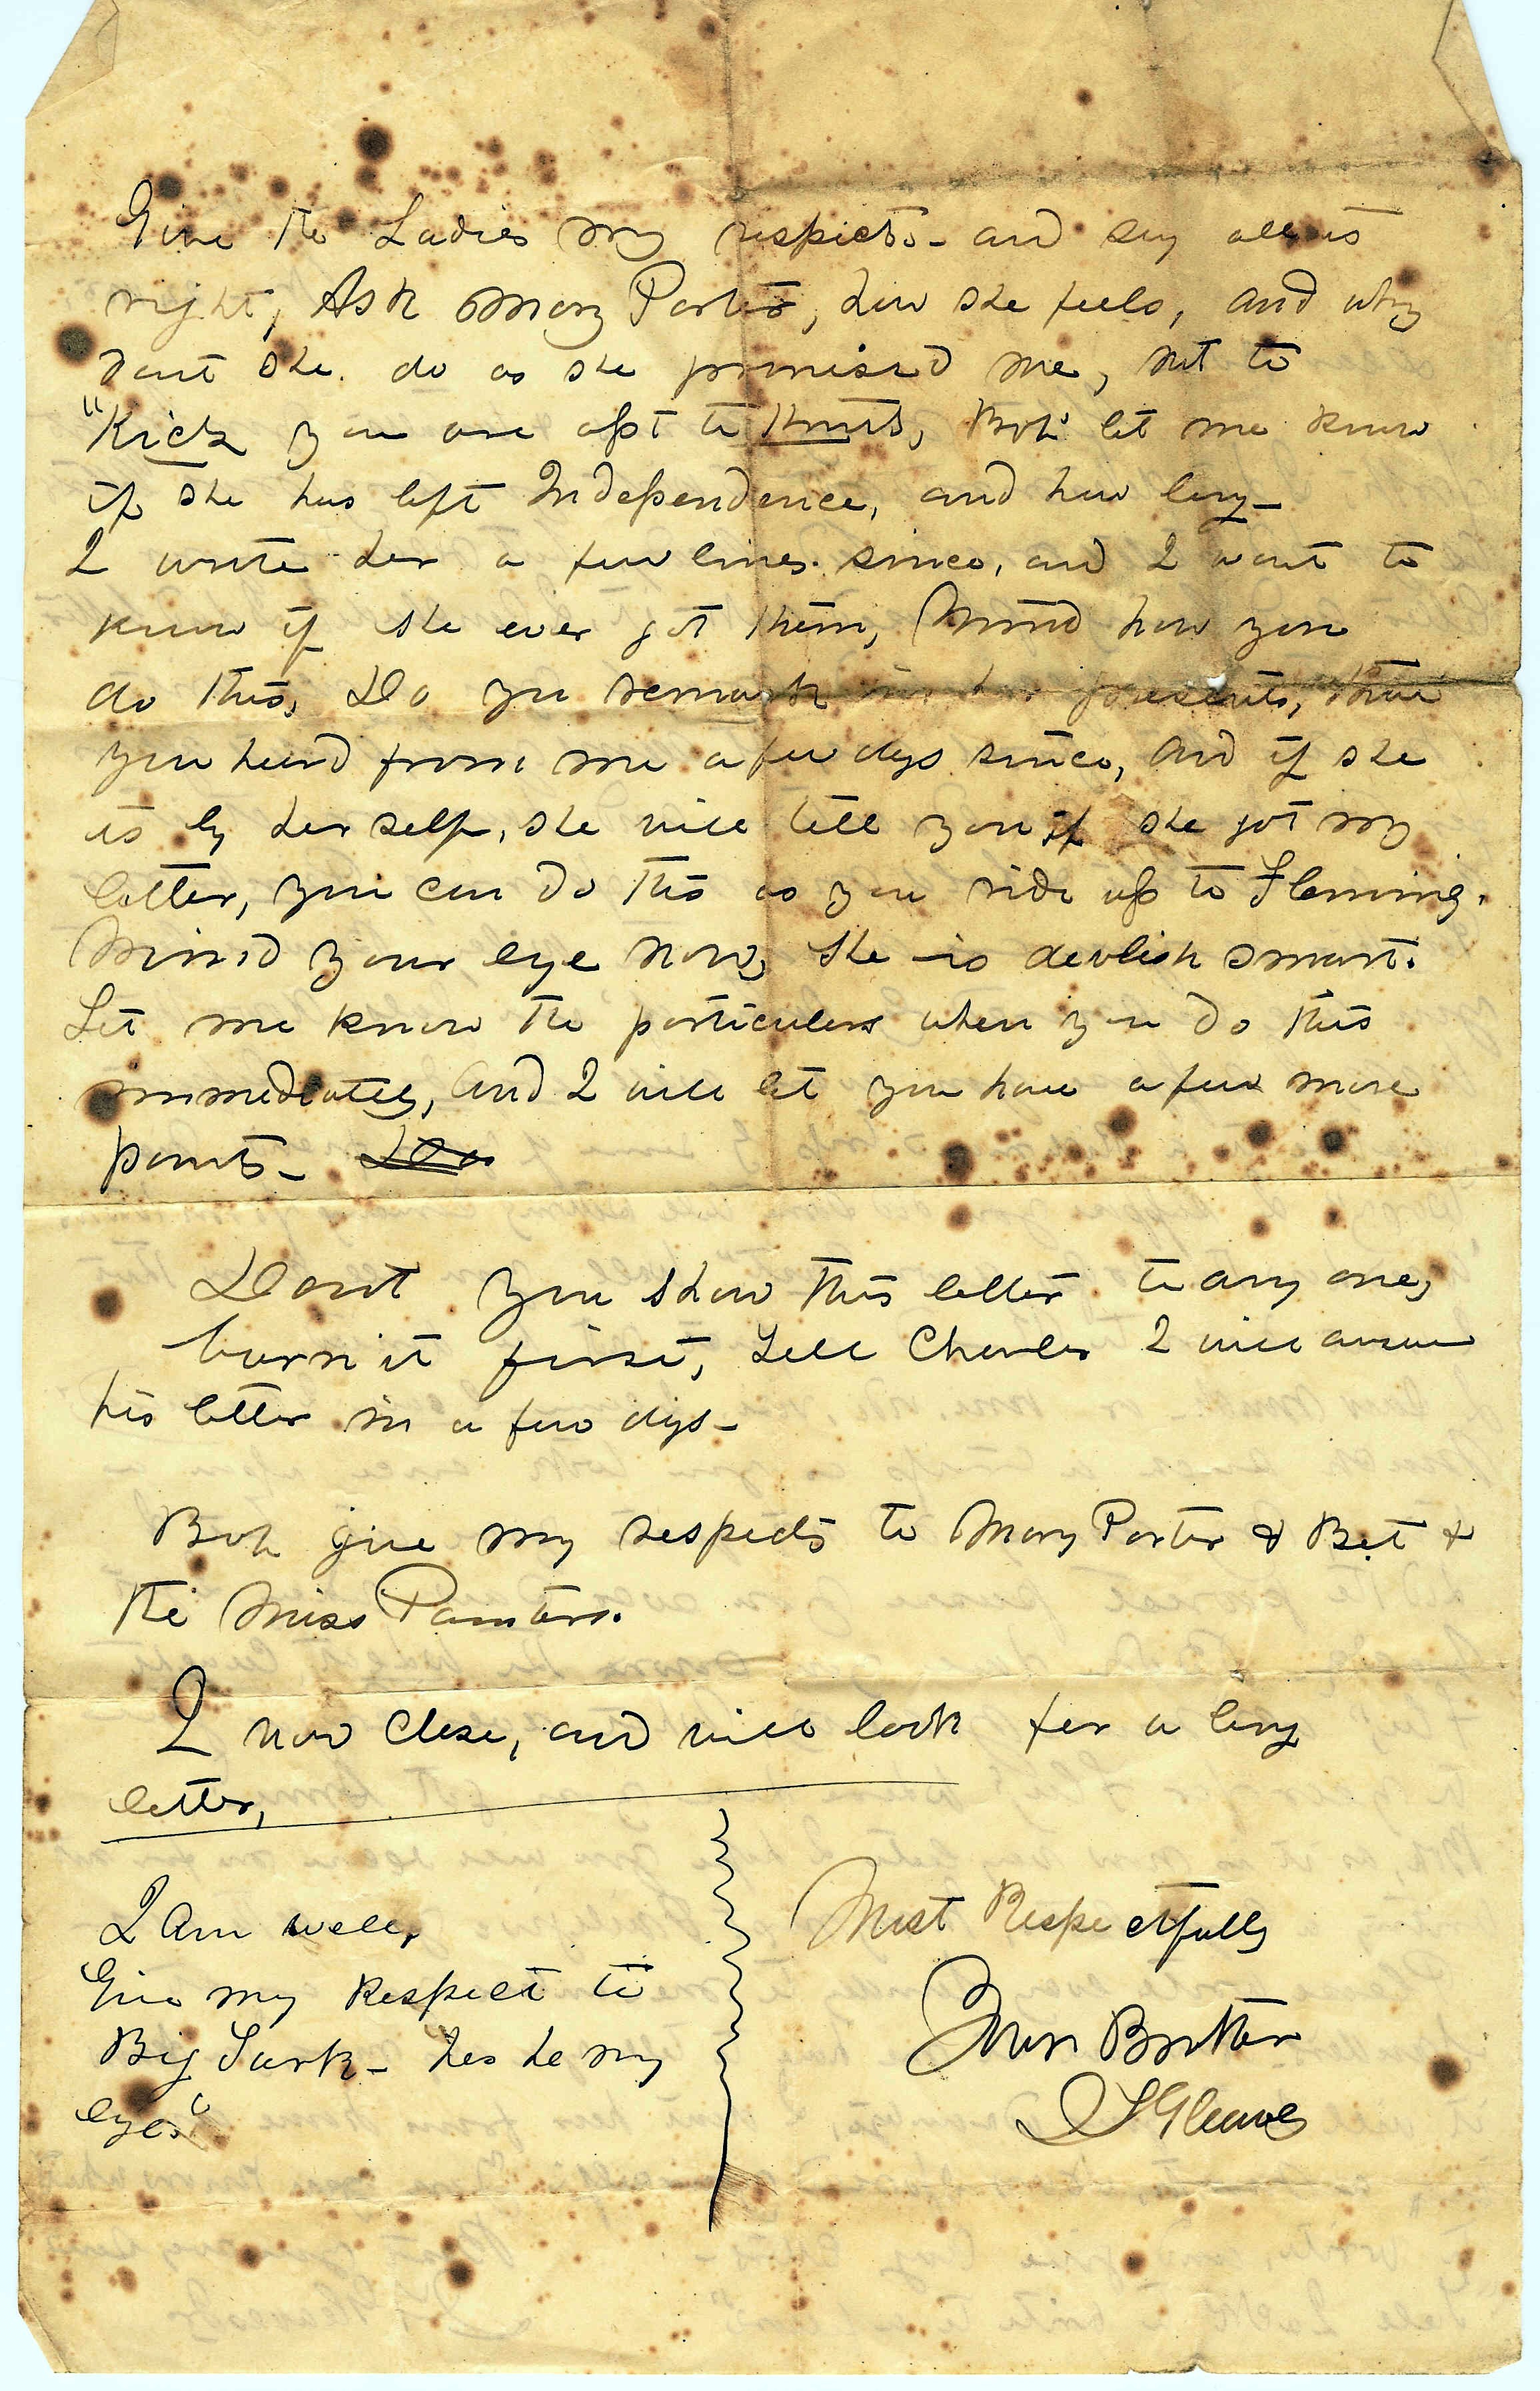 Give the Ladies my respects - and say all is
right, Ask Mary Porter, how she feels, and why
dont she do as she promised me, not to
"Kick you are apt to , Bob let me know
if she has left Independence, and how long -
I wrote her a few lines since, and I want to
know if she ever got them, Mind how you
do this, Do you remark in her presents, that
you heard from me a few days since, and if she
is by her self, she will tell you if she got my
letter, you can do this as you ride up to Fleming.
Mind your eye now, she is devlish smart.
Let me know the particulars when you do this
immediately, and I will let you have a few more
points - Do
Dont you show this letter to any one,
burn it first, Tell Charles I will answer
his letter in a few days -
Bob give my respects to Mary Porter & Bet &
the Miss Painters.
I now close, and will look for a long
letter,
I am well,
Give my Respect to
Big Turk - my
eyes"
Most Respectfully
Your Brother
S Gleaves